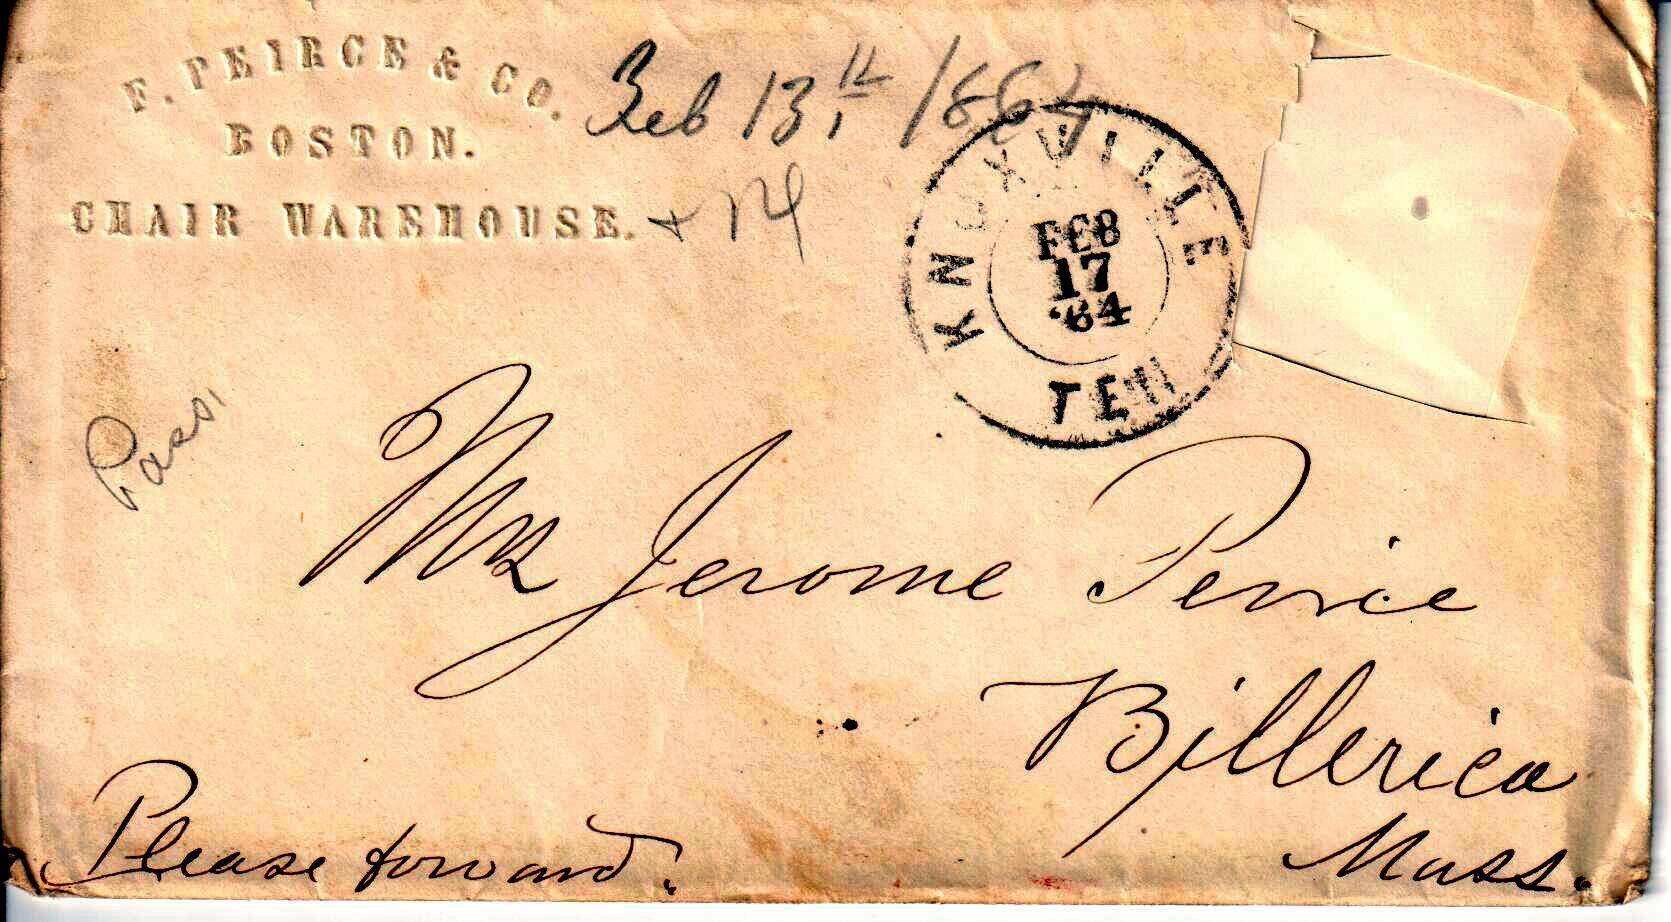 F. PEIRCE & CO.
BOSTON.
CHAIR WAREHOUSE.
Feb 13th /1864
KNOXVILLE
FEB
17
'64
TEN
Mr Jerome Peirce
Billerica
Mass.
Please forward.